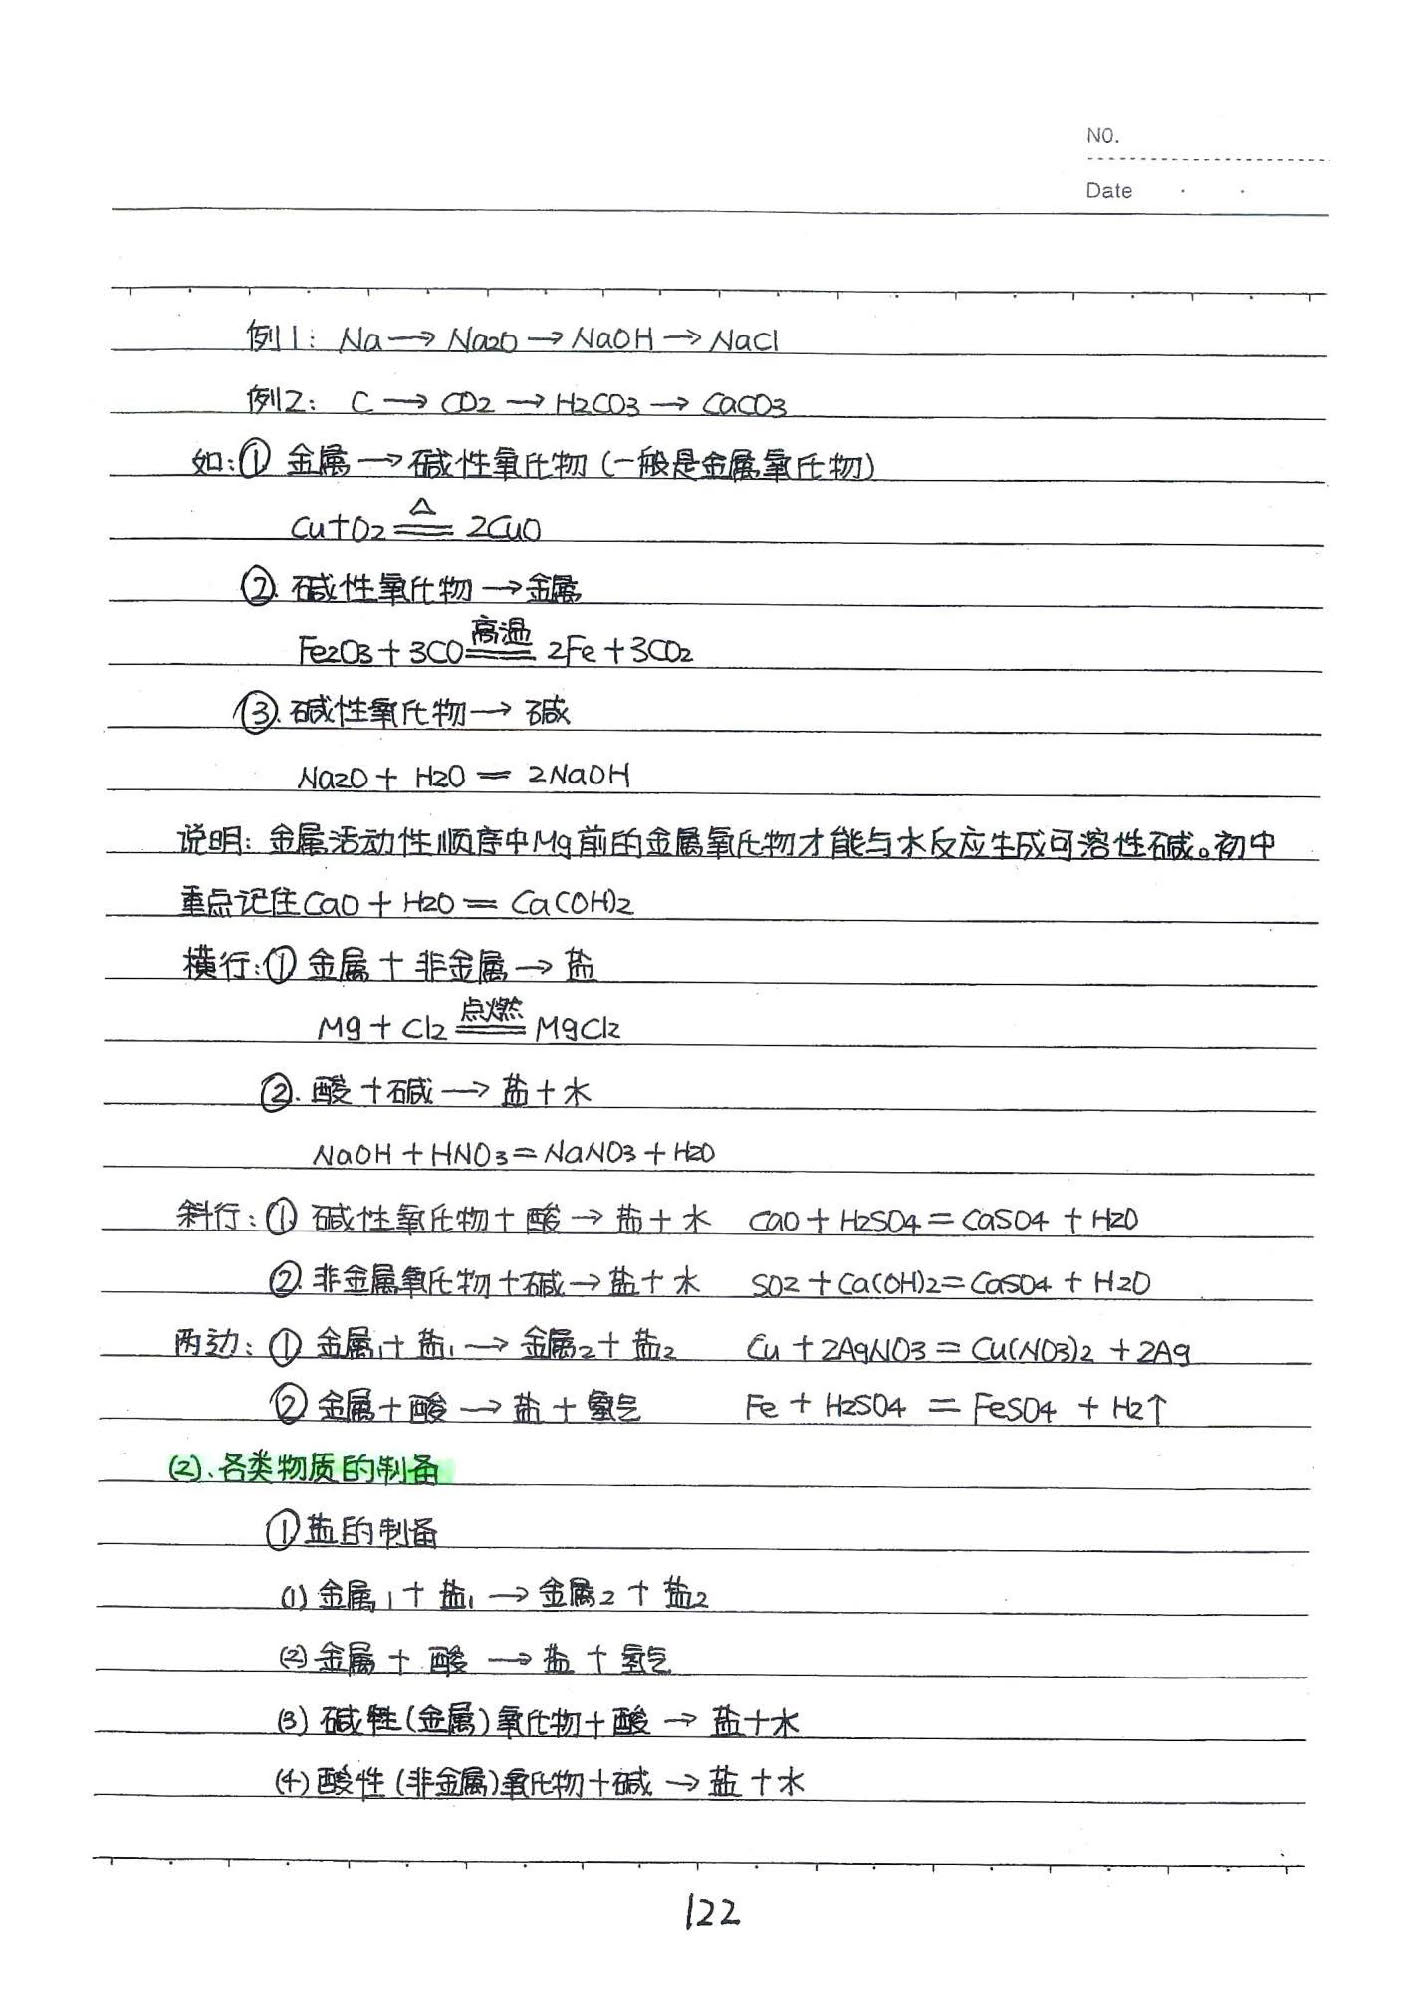 NO.
Date
例1: Na→Na2O→NaOH→NaCl
例2: C→CO2→H2CO3→CaCO3
如:① 金属→碱性氧化物(一般是金属氧化物)
Cu+O2 ≜ 2CuO
②. 碱性氧化物→金属
Fe2O3+3CO 高温 == 2Fe+3CO2
③. 碱性氧化物→碱
Na2O+H2O=2NaOH
说明: 金属活动性顺序中Mg前的金属氧化物才能与水反应生成可溶性碱。初中
重点记住CaO+H2O=Ca(OH)2
横行:① 金属+非金属→盐
Mg+Cl2 点燃 == MgCl2
②. 酸+碱→盐+水
NaOH+HNO3=NaNO3+H2O
斜行:① 碱性氧化物+酸→盐+水 CaO+H2SO4=CaSO4+H2O
②. 非金属氧化物+碱→盐+水 SO2+Ca(OH)2=CaSO4+H2O
两边:① 金属1+盐1→金属2+盐2 Cu+2AgNO3=Cu(NO3)2+2Ag
② 金属+酸→盐+氢气 Fe+H2SO4=FeSO4+H2↑
(2)、各类物质的制备
①盐的制备
(1) 金属1+盐1→金属2+盐2
(2) 金属+酸→盐+氢气
(3) 碱性(金属)氧化物+酸→盐+水
(4) 酸性(非金属)氧化物+碱→盐+水
122